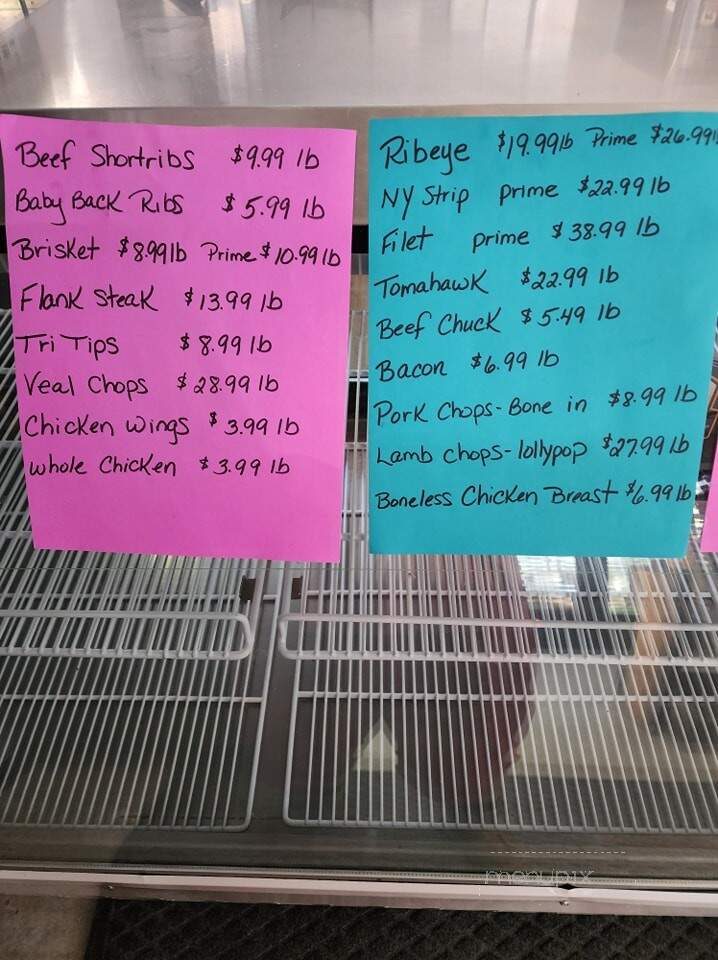 Beef Shortribs $9.99 lb
Baby Back Ribs $5.99 lb
Brisket $8.99lb Prime $10.99 lb
Flank Steak $13.99 lb
Tri Tips $8.99 lb
Veal Chops $28.99 lb
Chicken wings $3.99 lb
whole Chicken $3.99 lb
Ribeye $19.99lb Prime $26.99l
NY Strip prime $22.99 lb
Filet prime $38.99 lb
Tomahawk $22.99 lb
Beef Chuck $5.49 lb
Bacon $6.99 lb
Pork Chops-Bone in $8.99 lb
Lamb chops-lollypop $27.99 lb
Boneless Chicken Breast $6.99 lb
menupix